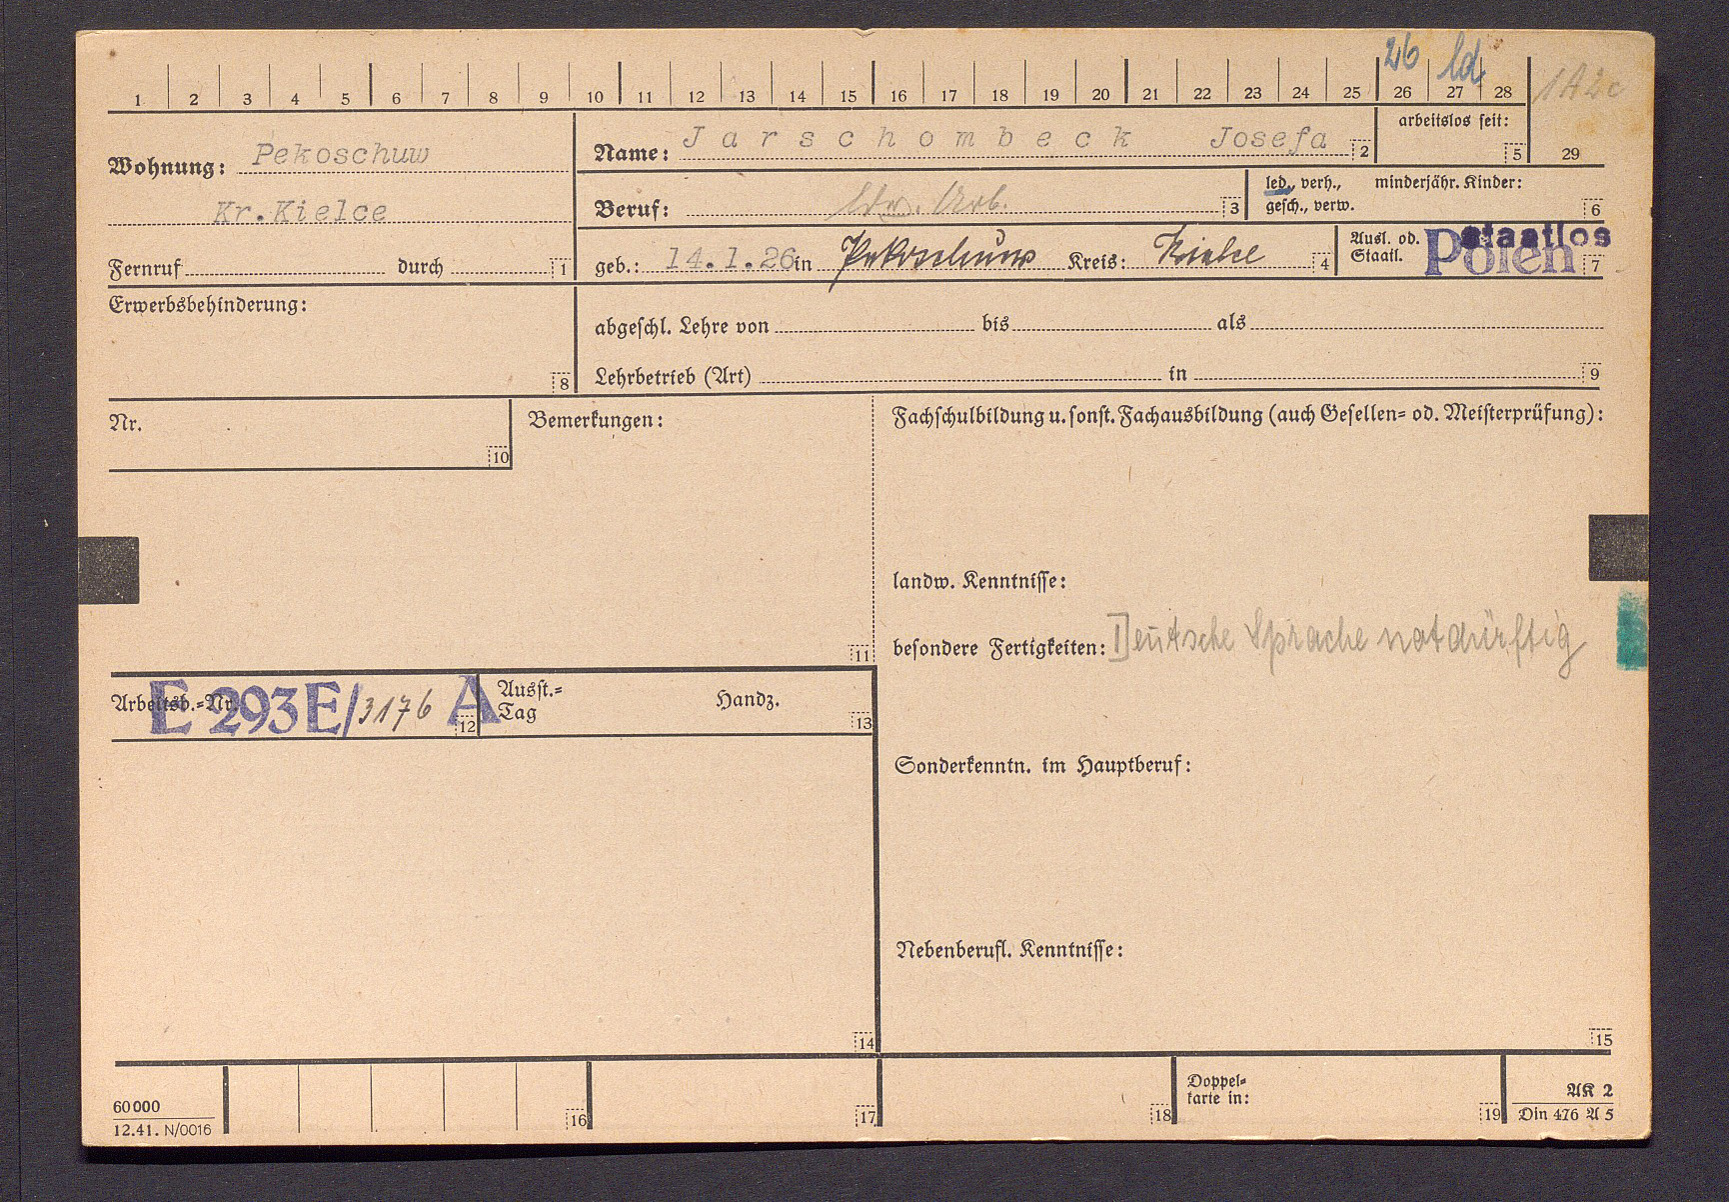 26 ld.
1 2 3 4 5 6 7 8 9 10 11 12 13 14 15 16 17 18 19 20 21 22 23 24 25 26 27 28 1A2c
Wohnung: Pekoschuw
Kr.Kielce
Fernruf durch 1
Name: Jarschombeck Josefa 2
arbeitslos seit: 5
29
Beruf: ldw. Arb. 3
led., verh., minderjähr. Kinder:
gesch., verw. 6
geb.: 14.1.26 in Pekoschuw Kreis: Kielce 4
Ausl. od. staatlos
Staatl. Polen 7
Erwerbsbehinderung: 8
abgeschl. Lehre von bis als
Lehrbetrieb (Art) in 9
Nr. 10
Bemerkungen: 11
Fachschulbildung u. sonst. Fachausbildung (auch Gesellen- od. Meisterprüfung):
landw. Kenntnisse:
besondere Fertigkeiten: Deutsche Sprache notdürftig
Arbeitsb.-Nr. E 293 E/3176 A 12
Ausst.-
Tag Handz. 13
Sonderkenntn. im Hauptberuf:
Nebenberufl. Kenntnisse:
14 15
60000
12.41. N/0016
16 17 18
Doppel-
karte in: 19
AK 2
Din 476 A 5